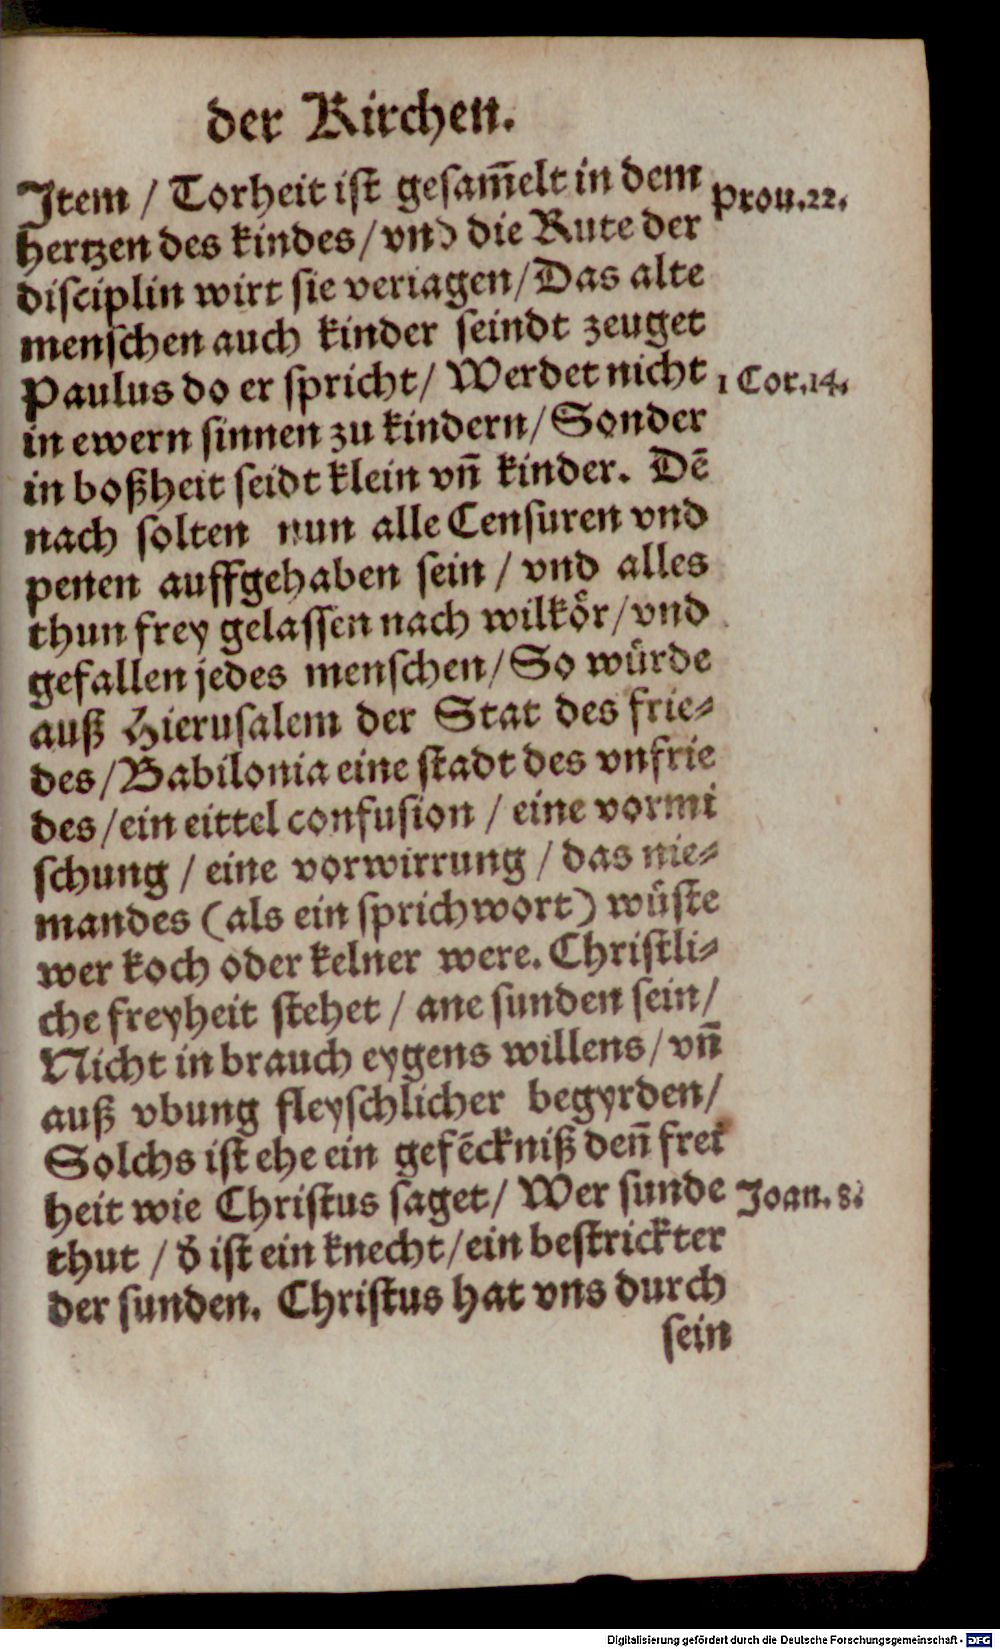 der Kirchen.
Item / Torheit ist gesam̃elt in dem
Prou.22.
hertzen des kindes/vnd die Rute der
disciplin wirt sie veriagen/Das alte
menschen auch kinder seindt zeuget
Paulus do er spricht/ Werdet nicht
1 Cor.14.
in ewern sinnen zu kindern/Sonder
in boßheit seidt klein vñ kinder. Dẽ
nach solten nun alle Censuren vnd
penen auffgehaben sein / vnd alles
thun frey gelassen nach wilkoͤr/vnd
gefallen jedes menschen/So wuͤrde
auß Hierusalem der Stat des frie⸗
des/Babilonia eine stadt des vnfrie
des/ein eittel confusion / eine vormi
schung / eine vorwirrung / das nie⸗
mandes (als ein sprichwort) wuͤste
wer koch oder kelner were. Christli⸗
che freyheit stehet / ane sunden sein/
Nicht in brauch eygens willens/vñ
auß vbung fleyschlicher begyrden/
Solchs ist ehe ein gefẽckniß deñ frei
heit wie Christus saget/ Wer sunde
Joan. 8.
thut / d̕ ist ein knecht/ein bestrickter
der sunden. Christus hat vns durch
sein
Digitalisierung gefördert durch die Deutsche Forschungsgemeinschaft - DFG